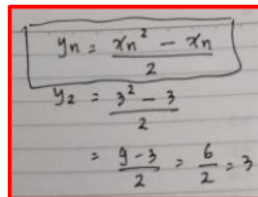 yn = xn² - xn / 2
y2 = 3² - 3 / 2
= 9-3 / 2 = 6 / 2 = 3